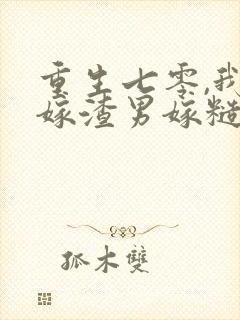 重生七零,我
嫁渣男嫁糙
孤木雙